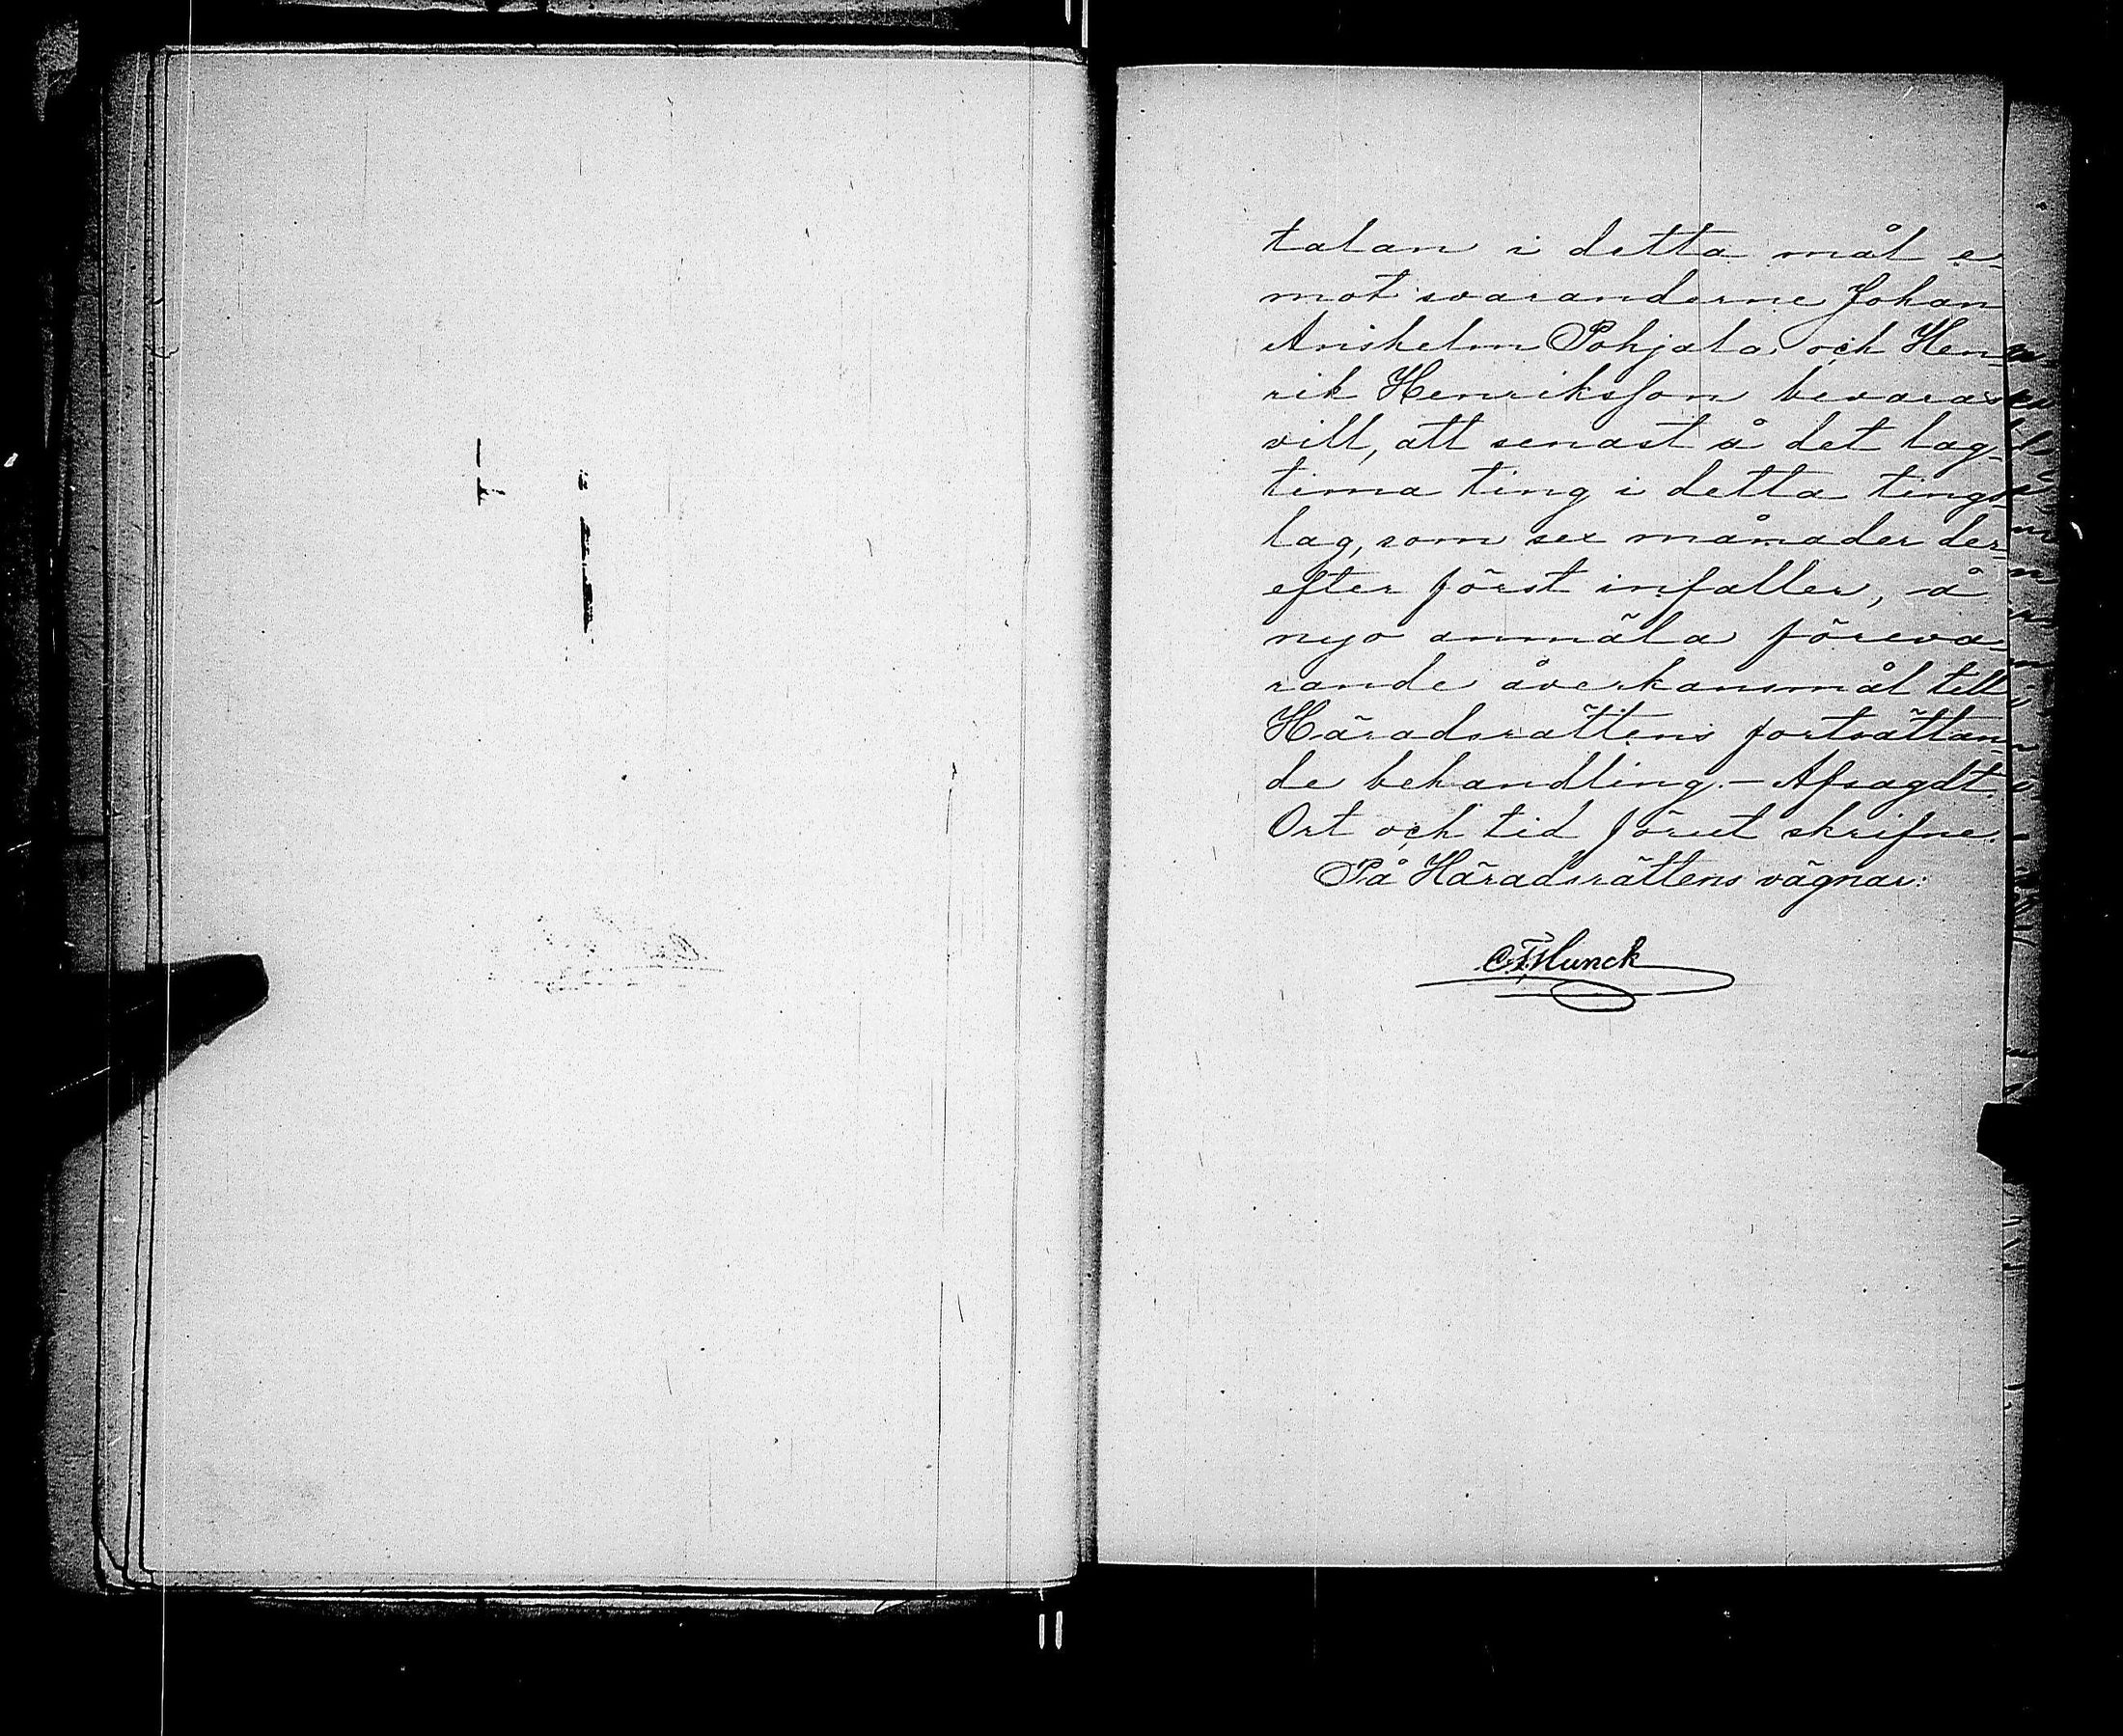 talan i detta mål e-
mot svaranderne Johan
Anshelm Pohjala och Hen-
rik Henriksson bevaras
vill, att senast å det lag-
tima ting i detta tings-
lag, som sex månader der-
efter först infaller, å
nyo anmäla föreva-
rande åverkansmål till
Häradsrättens fortsättan-
de behandling. - Afsagdt.
Ort och tid förut skrifne.
På Häradsrättens vägnar:
C F Munck